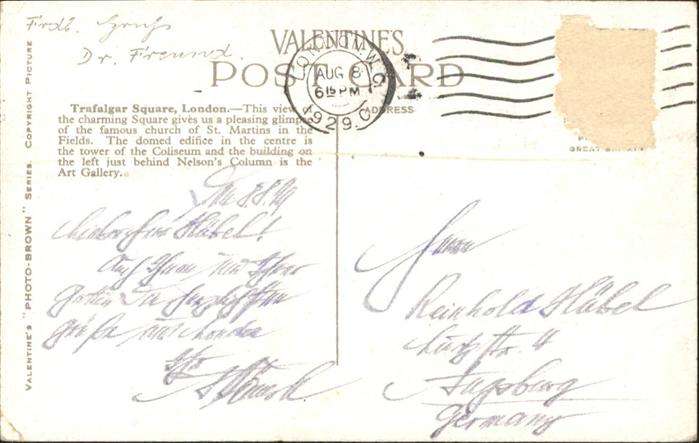 Frdl. Gruß
Dr. Freund.
VALENTINES
POST CARD
LONDON. W.C.
AUG 8
6 15 PM
1929. C
ADDRESS
Trafalgar Square, London.—This view of
the charming Square gives us a pleasing glimpse
of the famous church of St. Martins in the
Fields. The domed edifice in the centre is
the tower of the Coliseum and the building on
the left just behind Nelson's Column is the
Art Gallery.
VALENTINE'S "PHOTO-BROWN" SERIES. COPYRIGHT PICTURE
GREAT BRITAIN
8.8.29
Häbel!
Auch Ihnen und Ihrer
Gattin die herzlichsten
Grüße aus London
Ihr
Herrn
Reinhold Häbel
str. 4
Augsburg
Germany